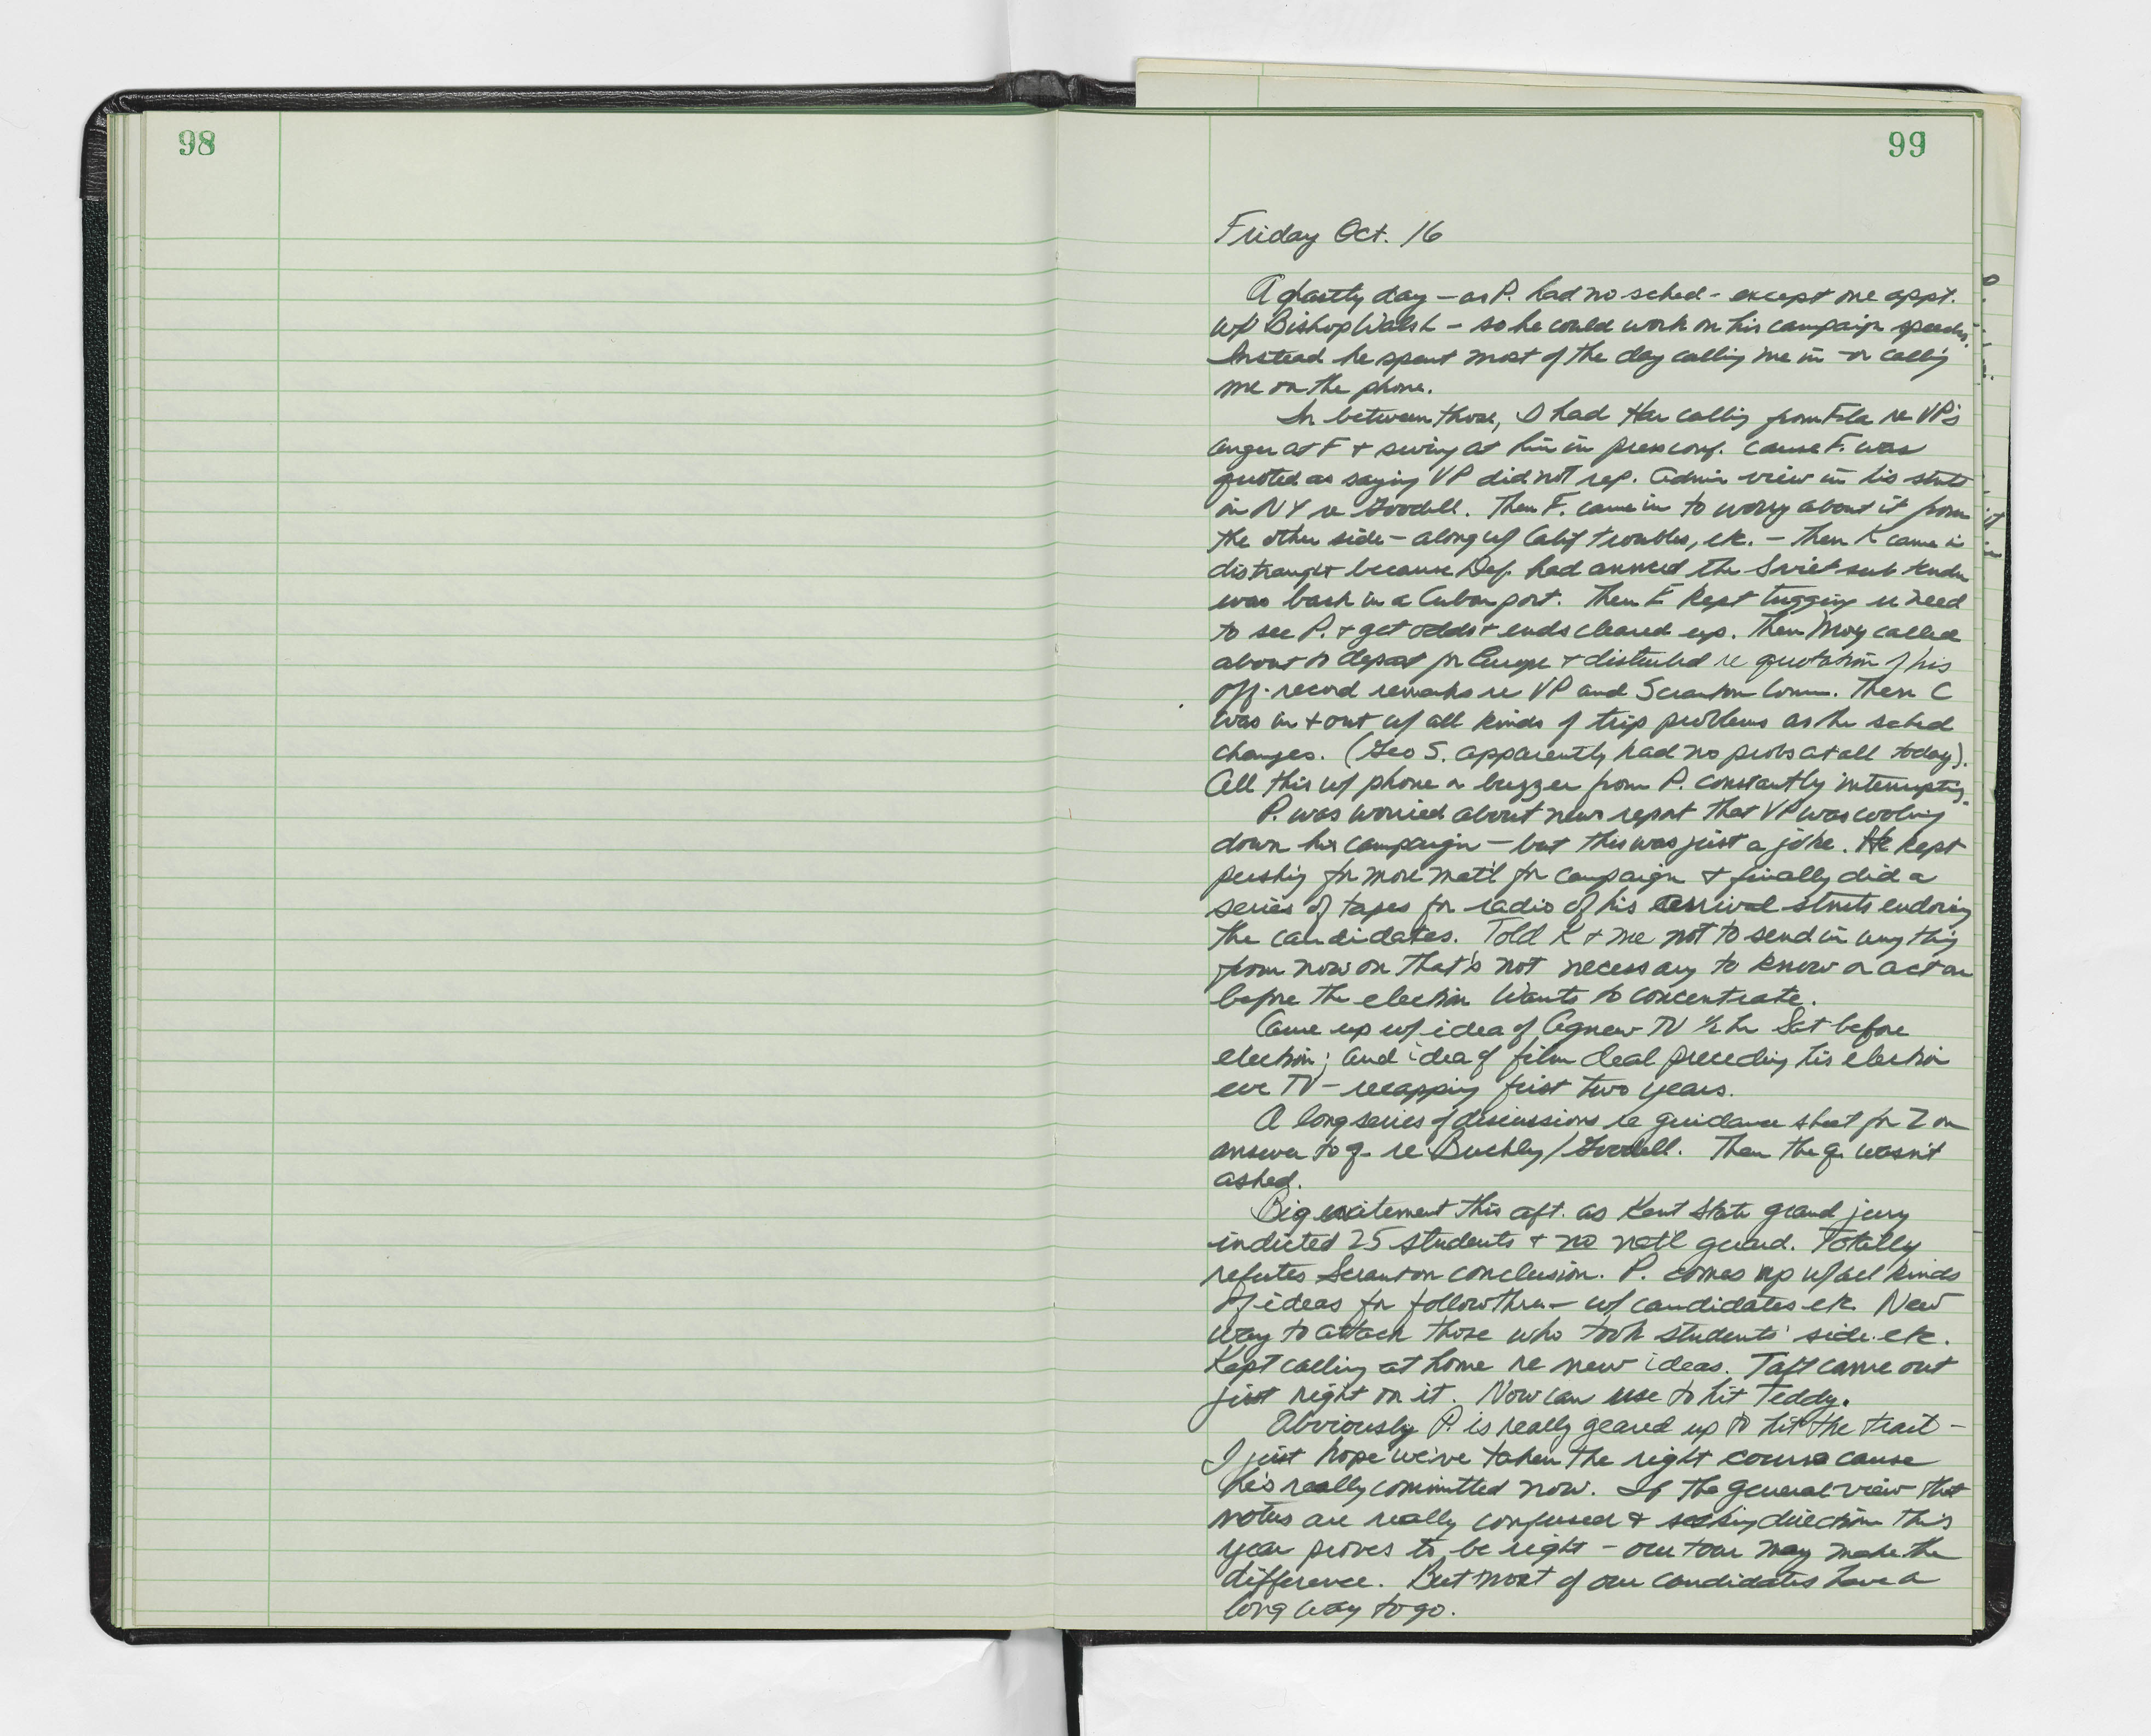 98
99
Friday Oct. 16
A ghastly day – as P. had no sched – except one appt.
w/ Bishop Walsh – so he could work on his campaign speeches.
Instead he spent most of the day calling me in – or calling
me on the phone.
In between those, I had Har calling from Fla re VP's
anger at F + swing at him in press conf. cause F. was
quoted as saying VP did not rep. Admin view in his stmts
in NY re Goodell. Then F. came in to worry about it from
the other side – along w/ Calif troubles, etc. – then K came in
distraught because Def. had annced the Soviet sub tender
was back in a Cuban port. Then E kept tugging re need
to see P. + get odds + ends cleared up. Then Moy called
about to depart for Europe + disturbed re quotation of his
off-record remarks re VP and Scranton Comm. Then C
was in + out w/ all kinds of trip problems as the sched
changes. (Geo S. apparently had no probs at all today).
All this w/ phone or buzzer from P. constantly interrupting.
P. was worried about news report that VP was cooling
down his campaign – but this was just a joke. He kept
pushing for more mat'l for campaign + finally did a
series of tapes for radio of his arrival stmts endorsing
the candidates. Told K + me not to send in anything
from now on that's not necessary to know or act on
before the election Wants to concentrate.
Came up w/ idea of Agnew TV ½ hr Sat before
election; and idea of film deal preceding his election
eve TV – recapping first two years.
A long series of discussions re guidance sheet for Z on
answer to q. re Buckley/Goodell. Then the q. wasn't
asked.
Big excitement this aft. as Kent State grand jury
indicted 25 students + no nat'l guard. Totally
refutes Scranton conclusion. P. comes up w/ all kinds
of ideas for follow thru – w/ candidates etc. New
way to attack those who took students' side. etc.
Kept calling at home re new ideas. Taft came out
just right on it. Now can use to hit Teddy.
Obviously P. is really geared up to hit the trail –
I just hope we've taken the right course cause
he's really committed now. If the general view that
voters are really confused + seeking direction this
year proves to be right – our tour may make the
difference. But most of our candidates have a
long way to go.